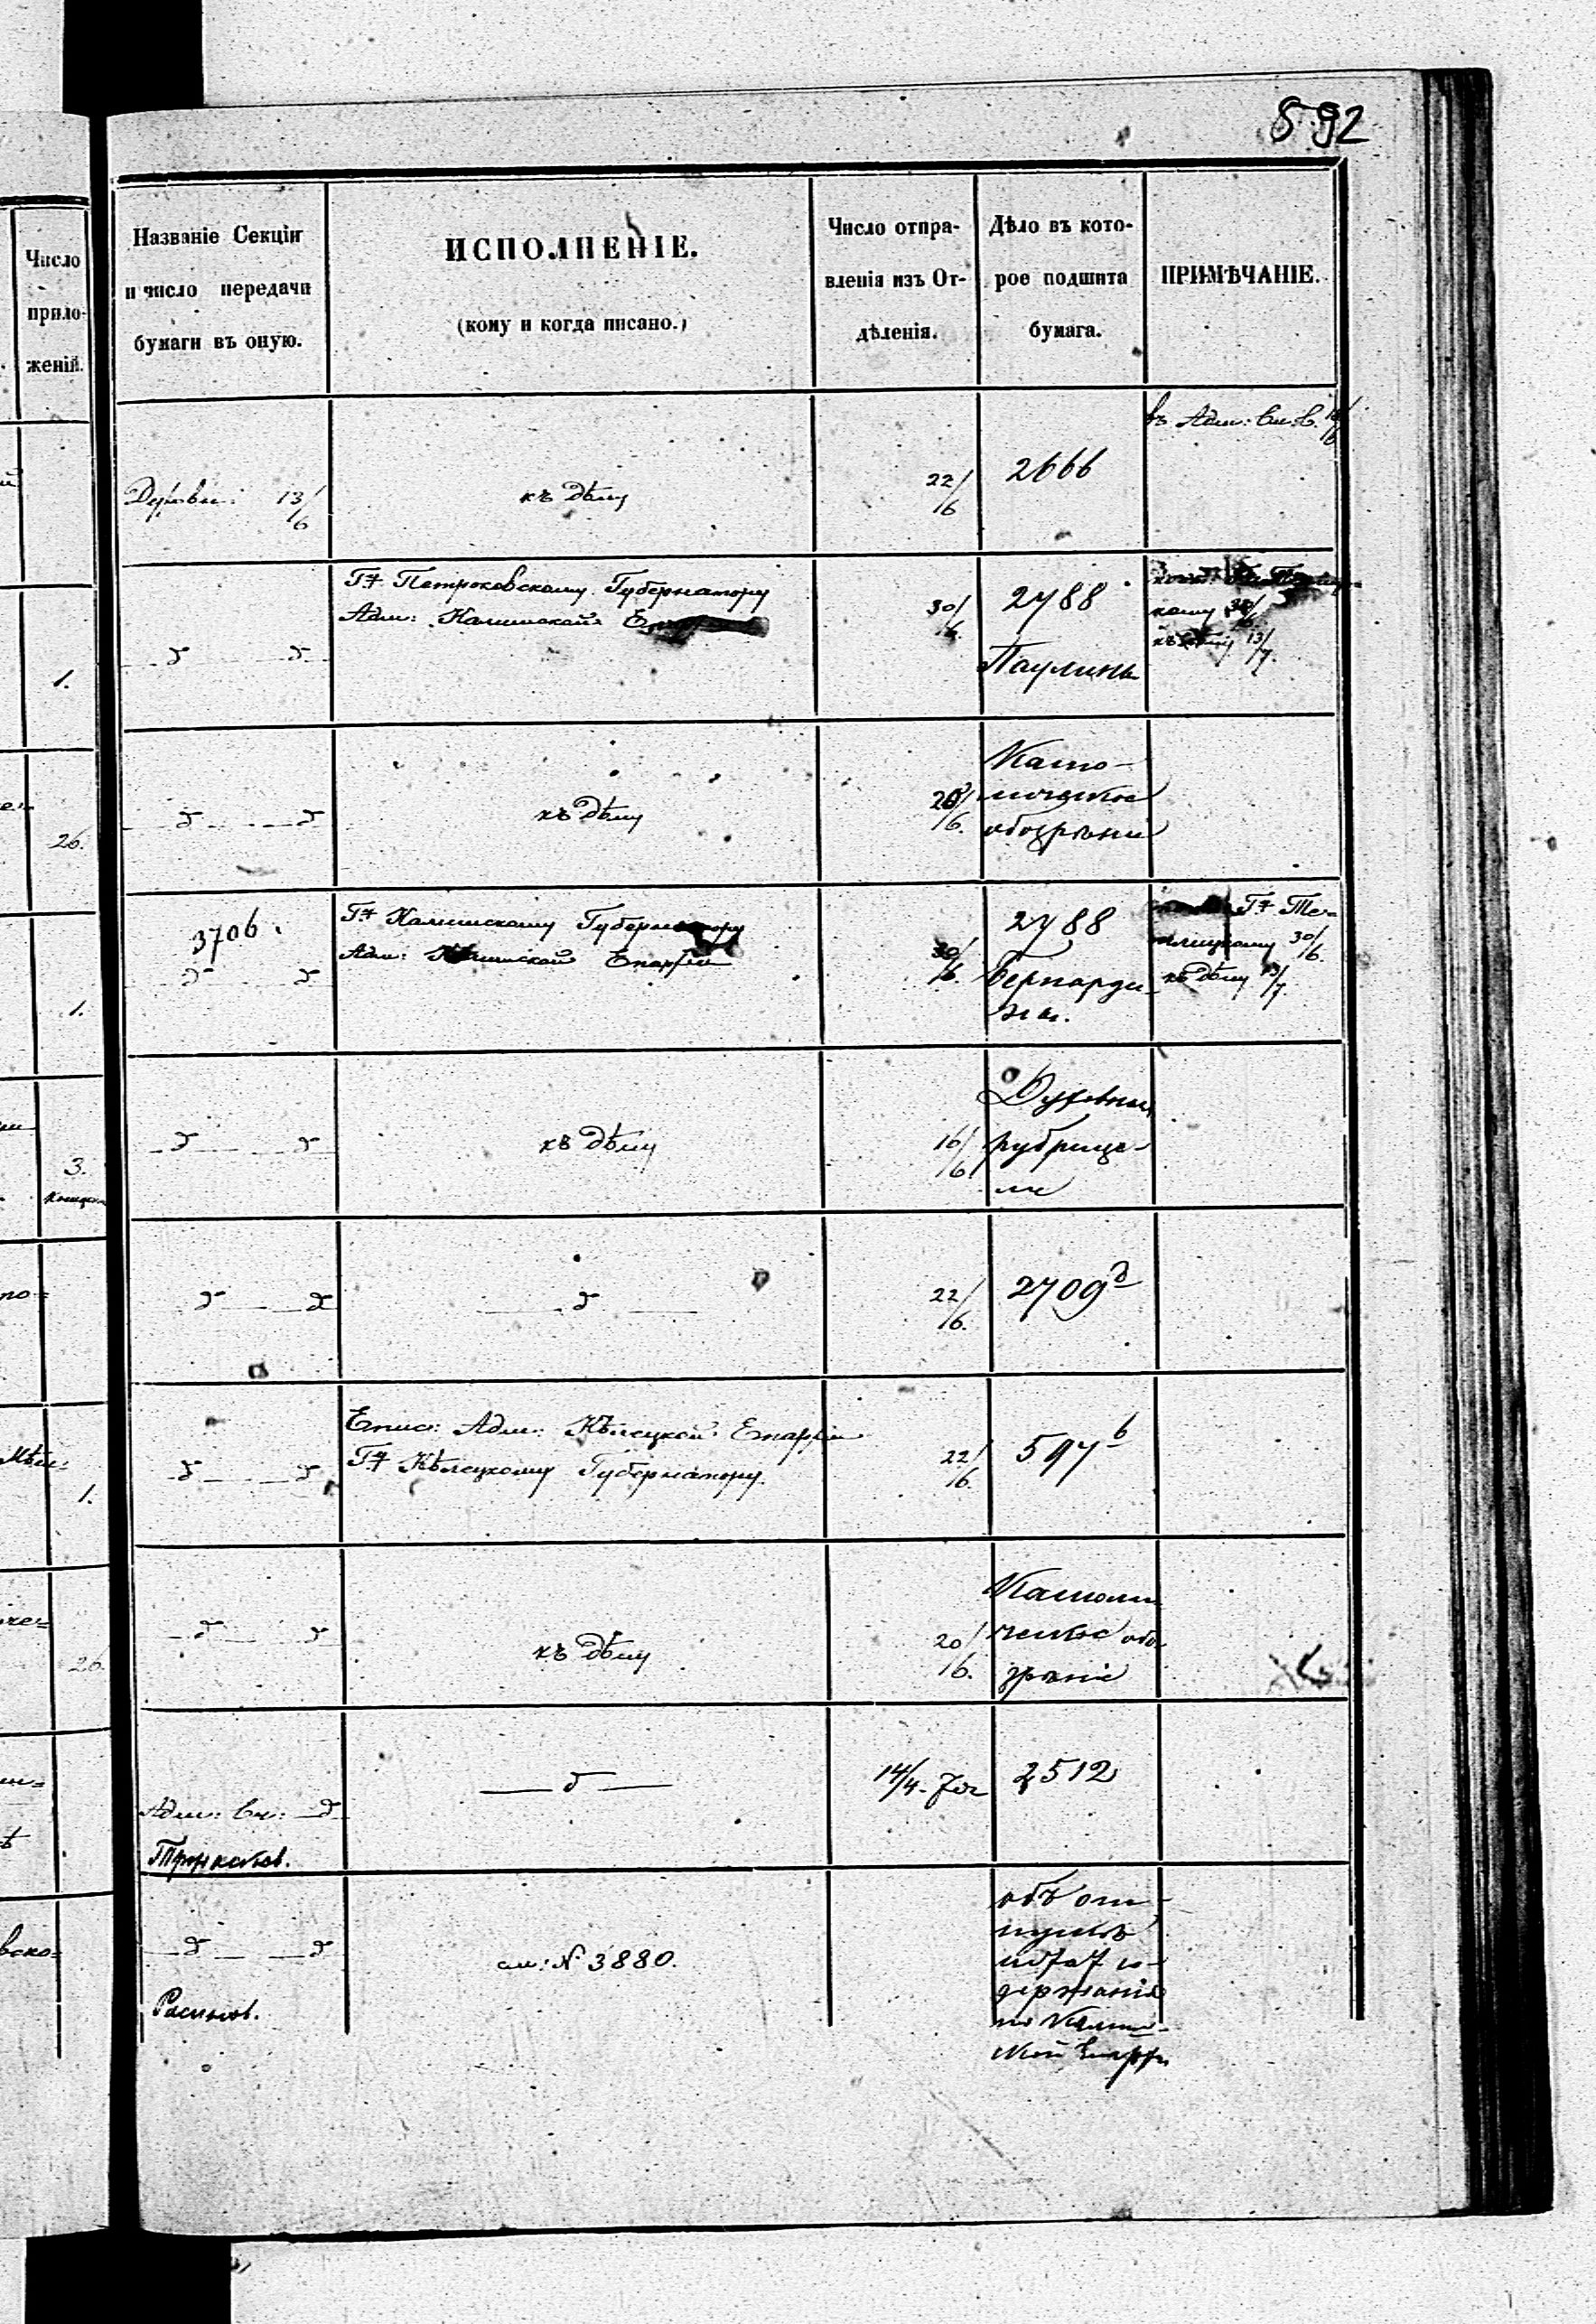 592
Число
прило-
женій.
Названіе Секціи
и число передачи
бумаги въ оную.
ИСПОЛНЕНІЕ.
(кому и когда писано.)
Число отпра-
вленія изъ От-
дѣленія.
Дѣло въ кото-
рое подшита
бумага.
ПРИМѢЧАНІЕ.
въ Адм:
Духовн: 13/6
къ дѣлу
22/6
2666
1.
д д
Гну Петроковскому Губернатору
Адм: Калишской
30/6.
2788
Паулины
скому 30/6
къ дѣлу 13/7.
26.
д д
къ дѣлу
20/6.
Като-
лическое
обозрѣніе
1.
3706.
д д
Гну Калишскому Губернатору
Адм: Калишской Епархіи
30/6.
2788
Бернарди-
ны.
Гну
30/6.
къ дѣлу 13/7.
3.
д д
къ дѣлу
16/6
Духовныя
рубрице-
ли
д д
д
22/6.
2709д
Мѣн:
1.
д д
Епис: Адм: Кѣлецкой Епархіи
Гну Кѣлецкому Губернатору.
22/6.
597в
26.
д д
къ дѣлу
20/6.
Католи
ческое обо-
зрѣніе
Адм: д
д
14/4
2512
вско=
д д
см: № 3880.
объ от-
пускѣ
со-
держанія
по Калиш-
ской Епархіи